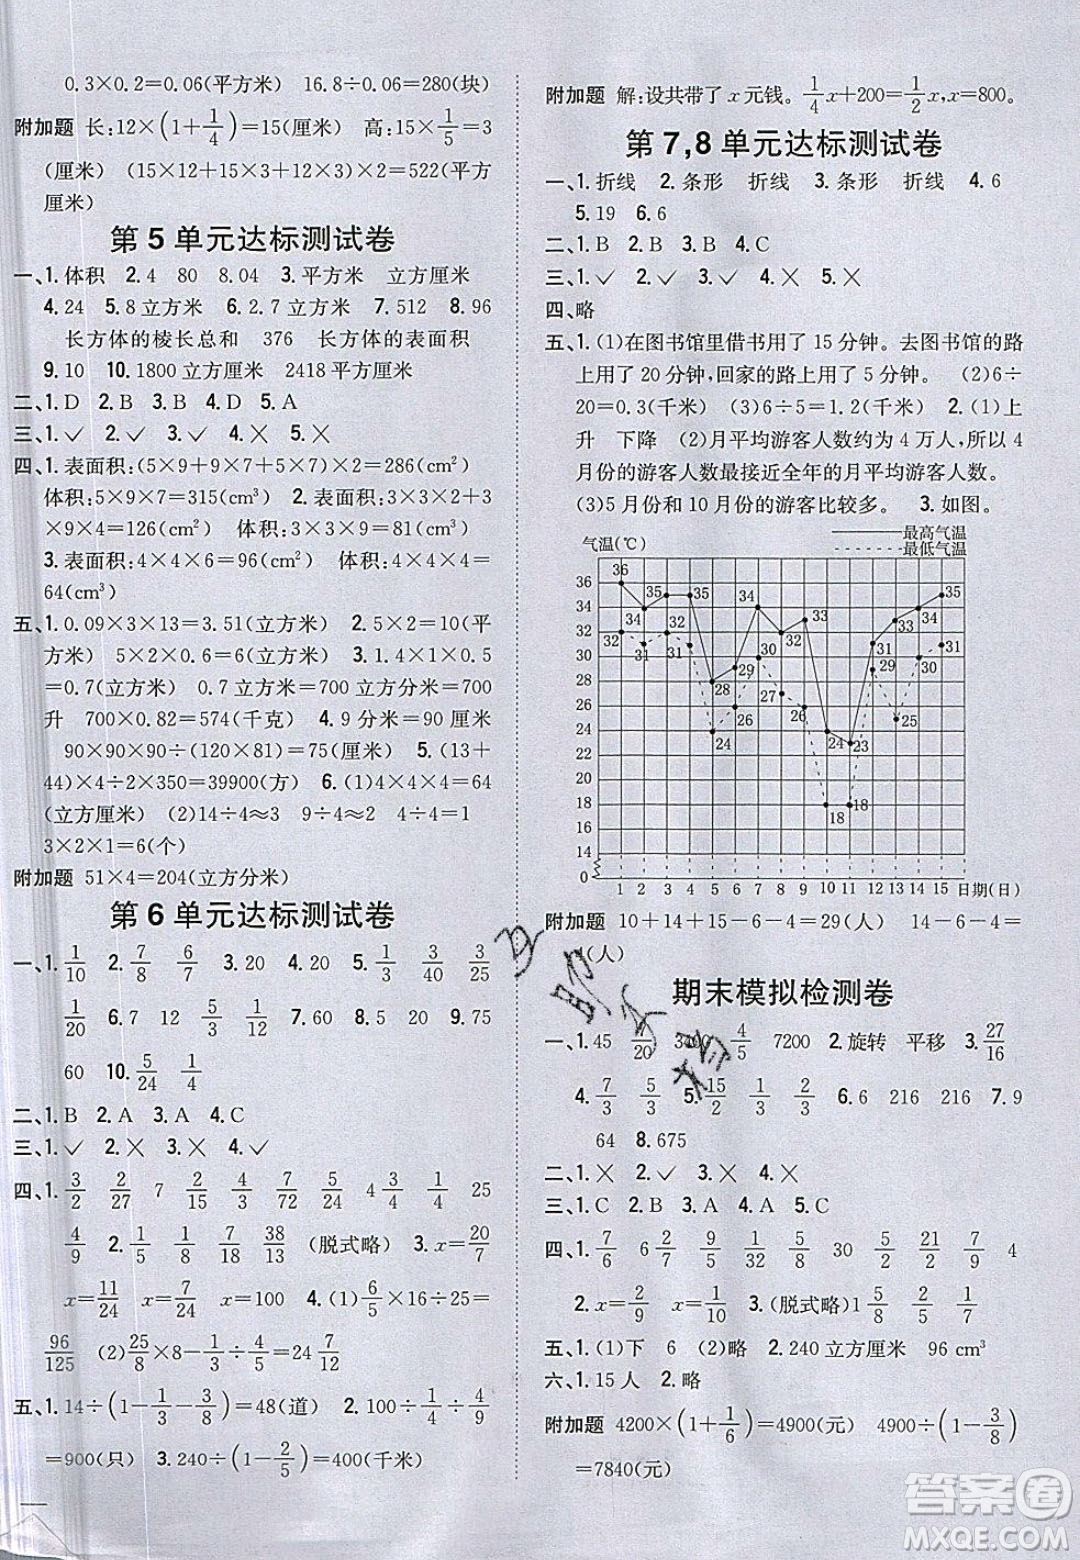 0.3×0.2=0.06(平方米) 16.8÷0.06=280(块)
附加题 长:12×(1+1/4)=15(厘米) 高:15×1/5=3
(厘米) (15×12+15×3+12×3)×2=522(平方
厘米)
第 5 单元达标测试卷
一、1.体积 2.4 80 8.04 3.平方米 立方厘米
4.24 5.8立方米 6.2.7立方米 7.512 8.96
长方体的棱长总和 376 长方体的表面积
9.10 10.1800立方厘米 2418平方厘米
二、1.D 2.B 3.B 4.D 5.A
三、1.✓ 2.✓ 3.✓ 4.✕ 5.✕
四、1.表面积:(5×9+9×7+5×7)×2=286(cm²)
体积:5×9×7=315(cm³) 2.表面积:3×3×2+3
×9×4=126(cm²) 体积:3×3×9=81(cm³)
3.表面积:4×4×6=96(cm²) 体积:4×4×4=
64(cm³)
五、1.0.09×3×13=3.51(立方米) 2.5×2=10(平
方米) 5×2×0.6=6(立方米) 3.1.4×1×0.5
=0.7(立方米) 0.7立方米=700立方分米=700
升 700×0.82=574(千克) 4.9分米=90厘米
90×90×90÷(120×81)=75(厘米) 5.(12+
44)×4÷2×350=39900(方) 6.(1)4×4×4=64
(立方厘米) (2)14÷4≈3 9÷4≈2 4÷4=1
3×2×1=6(个)
附加题 51×4=204(立方分米)
第 6 单元达标测试卷
一、1.1/10 2.7/8 6/7 3.20 4.20 3/8 3/40 5.3/25
1/20 6.7 12 5/12 1/12 7.60 8.5 20 9.75
60 10.5/24 1/4
二、1.B 2.A 3.A 4.C
三、1.✓ 2.✕ 3.✕ 4.✓
四、1.3/2 2/27 7 2/15 3/4 7/72 5/24 4 3/4 25
4/9 2.1/5 1/8 7/18 13/38 (脱式略) 3.x=20/7
x=11/24 x=7/24 x=100 4.(1)6/5×16÷25=
96/125 (2)25/8×8-1/5÷3/5=24 7/12
五、1.14÷(1-1/3-3/8)=48(道) 2.100÷1/4÷4/9
=900(只) 3.240÷(1-2/5)=400(千米)
附加题 解:设共带了x元钱。1/4x+200=1/2x,x=800。
第 7,8 单元达标测试卷
一、1.折线 2.条形 折线 3.条形 折线 4.6
5.19 6.6
二、1.B 2.B 3.B 4.C
三、1.✓ 2.✓ 3.✕ 4.✓ 5.✕
四、略
五、1.(1)在图书馆里借书用了15分钟。去图书馆的路
上用了20分钟,回家的路上用了5分钟。 (2)6÷
20=0.3(千米) (3)6÷5=1.2(千米) 2.(1)上
升 下降 (2)月平均游客人数约为4万人,所以4
月份的游客人数最接近全年的月平均游客人数。
(3)5月份和10月份的游客比较多。 3.如图。
气温(℃) 最高气温
最低气温
36 34 32 30 28 26 24 22 20 18 16 14 0
36 34 35 35 28 29 34 32 33 24 23 31 33 34 35
32 31 32 31 24 26 30 27 26 18 18 29 25 30 31
1 2 3 4 5 6 7 8 9 10 11 12 13 14 15 日期(日)
附加题 10+14+15-6-4=29(人) 14-6-4=
(人)
期末模拟检测卷
一、1.45 7/20 4/5 7200 2.旋转 平移 3.27/16
4.7/3 5/3 5.15/2 1/2 3/2 6.6 216 216 7.9
64 8.675
二、1.✕ 2.✕ 3.✕ 4.✕
三、1.C 2.B 3.C 4.C 5.A
四、1.7/6 6 2/3 7/4 9/32 5/6 30 5/2 21/2 7/9 4
2.x=2/9 x=1/10 3.(脱式略)1 5/8 2/5 1/7
五、1.(1)下 6 (2)略 2.240立方厘米 96 cm³
六、1.15人 2.略
附加题 4200×(1+1/6)=4900(元) 4900÷(1-3/8)
=7840(元)
答案圈
MXQE.COM